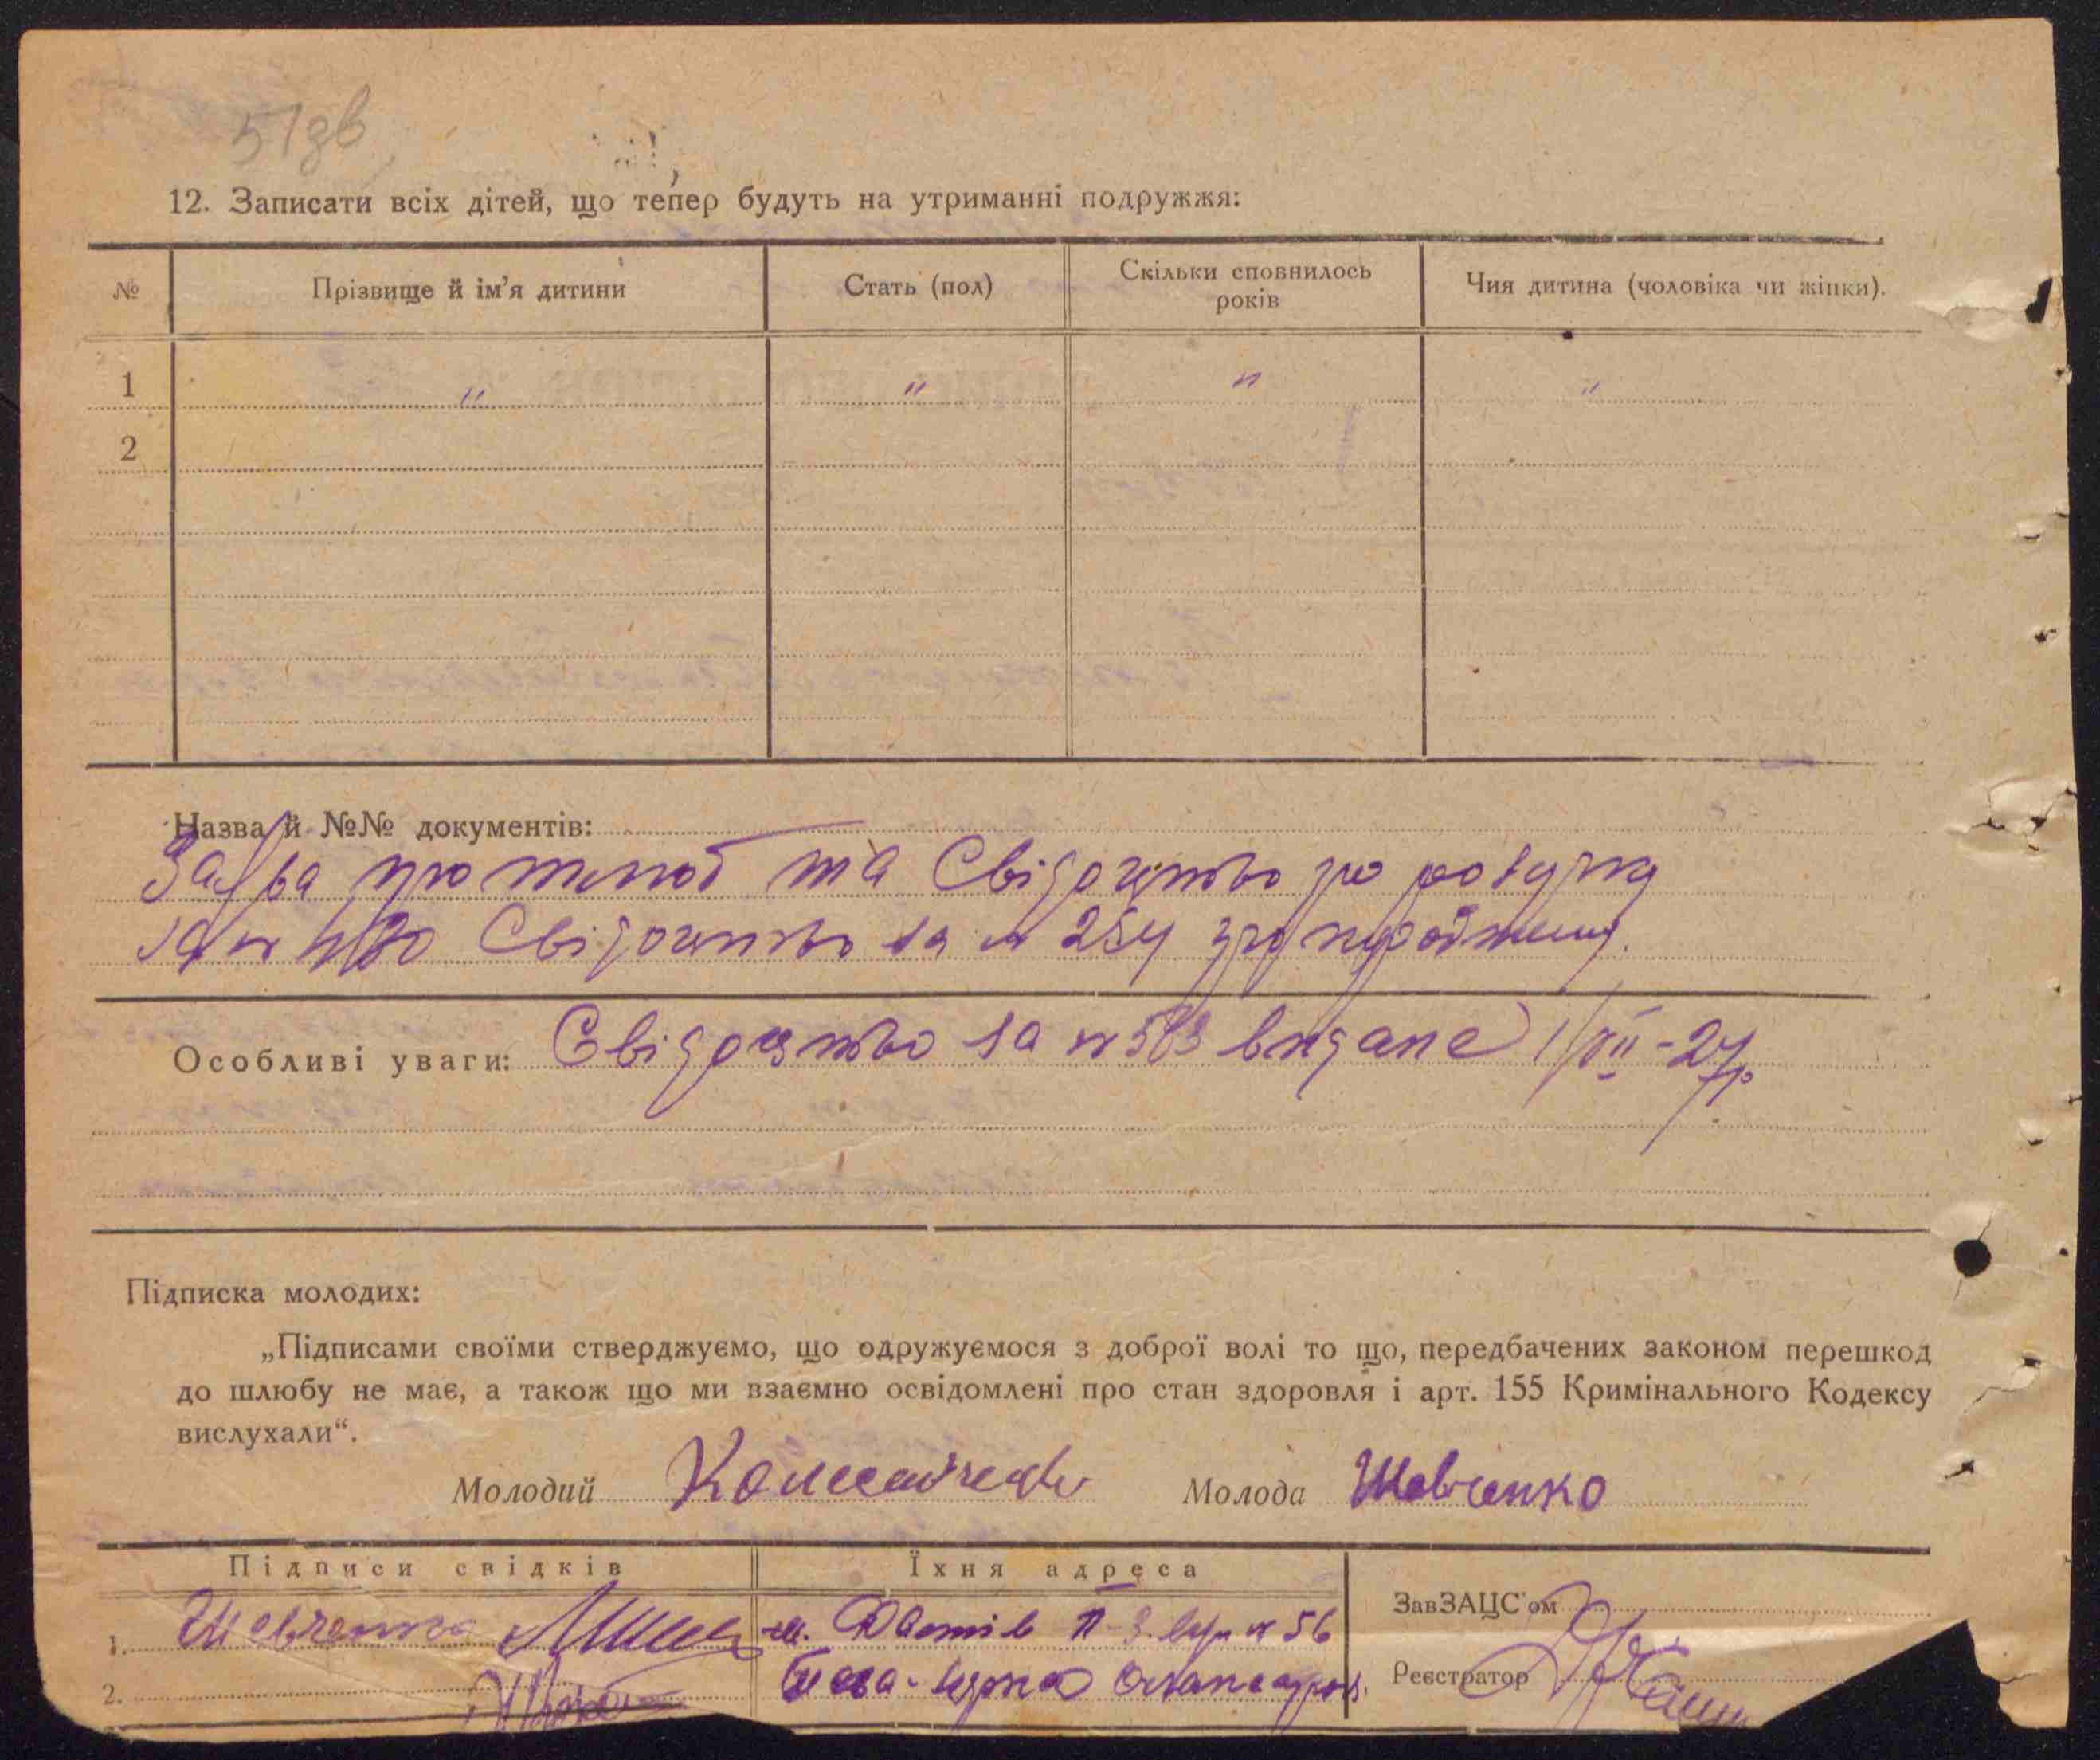 51зв
12. Записати всіх дітей, що тепер будуть на утриманні подружжя:
№ Прізвище й ім’я дитини Стать (пол) Скільки сповнилось років Чия дитина (чоловіка чи жінки).
1 " " " "
2
Назва й №№ документів:
Заява про шлюб та Свідоцтво про розлуку
за № Свідоцтво за № 254 про
Особливі уваги: Свідоцтво за № 583 видане 1/VII-27р
Підписка молодих:
„Підписами своїми стверджуємо, що одружуємося з доброї волі то що, передбачених законом перешкод
до шлюбу не має, а також що ми взаємно освідомлені про стан здоровля і арт. 155 Кримінального Кодексу
вислухали“.
Молодий Молода Шевченко
Підписи свідків Їхня адреса
ЗавЗАЦС'ом
1. Шевченко № 56
Реєстратор
2. Біла-Церква